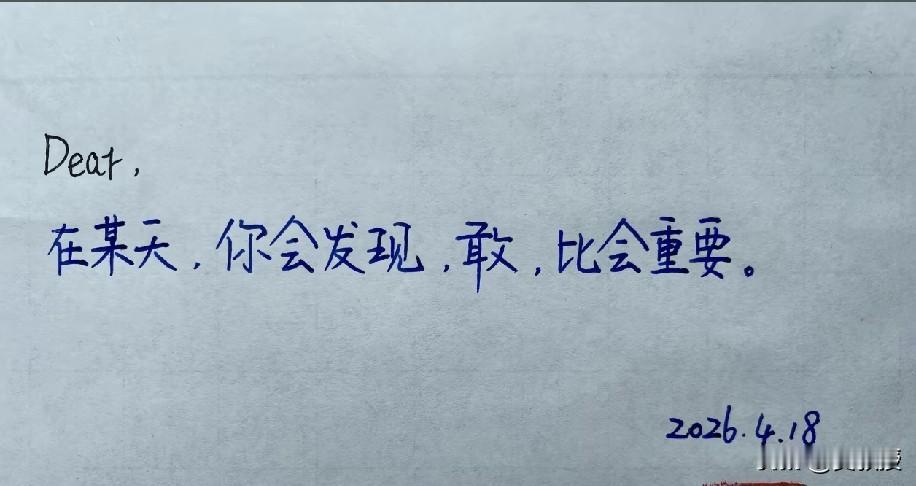 Dear,
在某天,你会发现,敢,比会重要。
2026.4.18